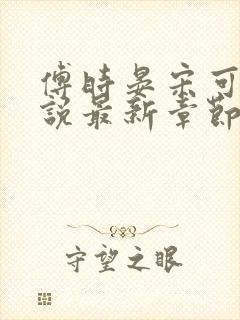 傅時晏宋可
說最新章節
守望之眼